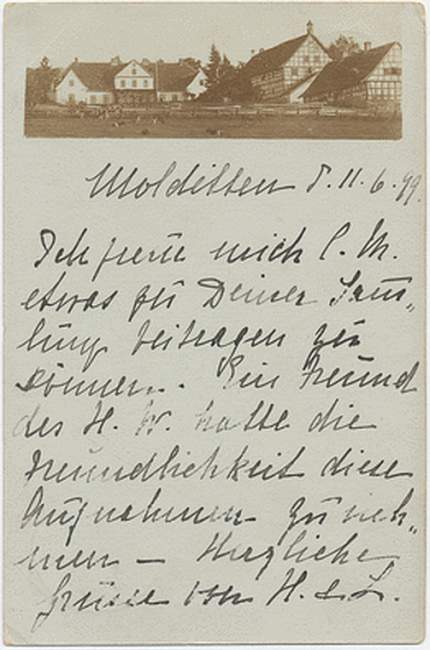 Molditten d. 11.6.99.
Ich freue mich l. M.
etwas zu Deiner Sam„
lung beitragen zu
können. Ein Freund
des H. W. hatte die
Freundlichkeit diese
Aufnahmen zu neh„
men – Herzliche
Grüsse von H. & L.